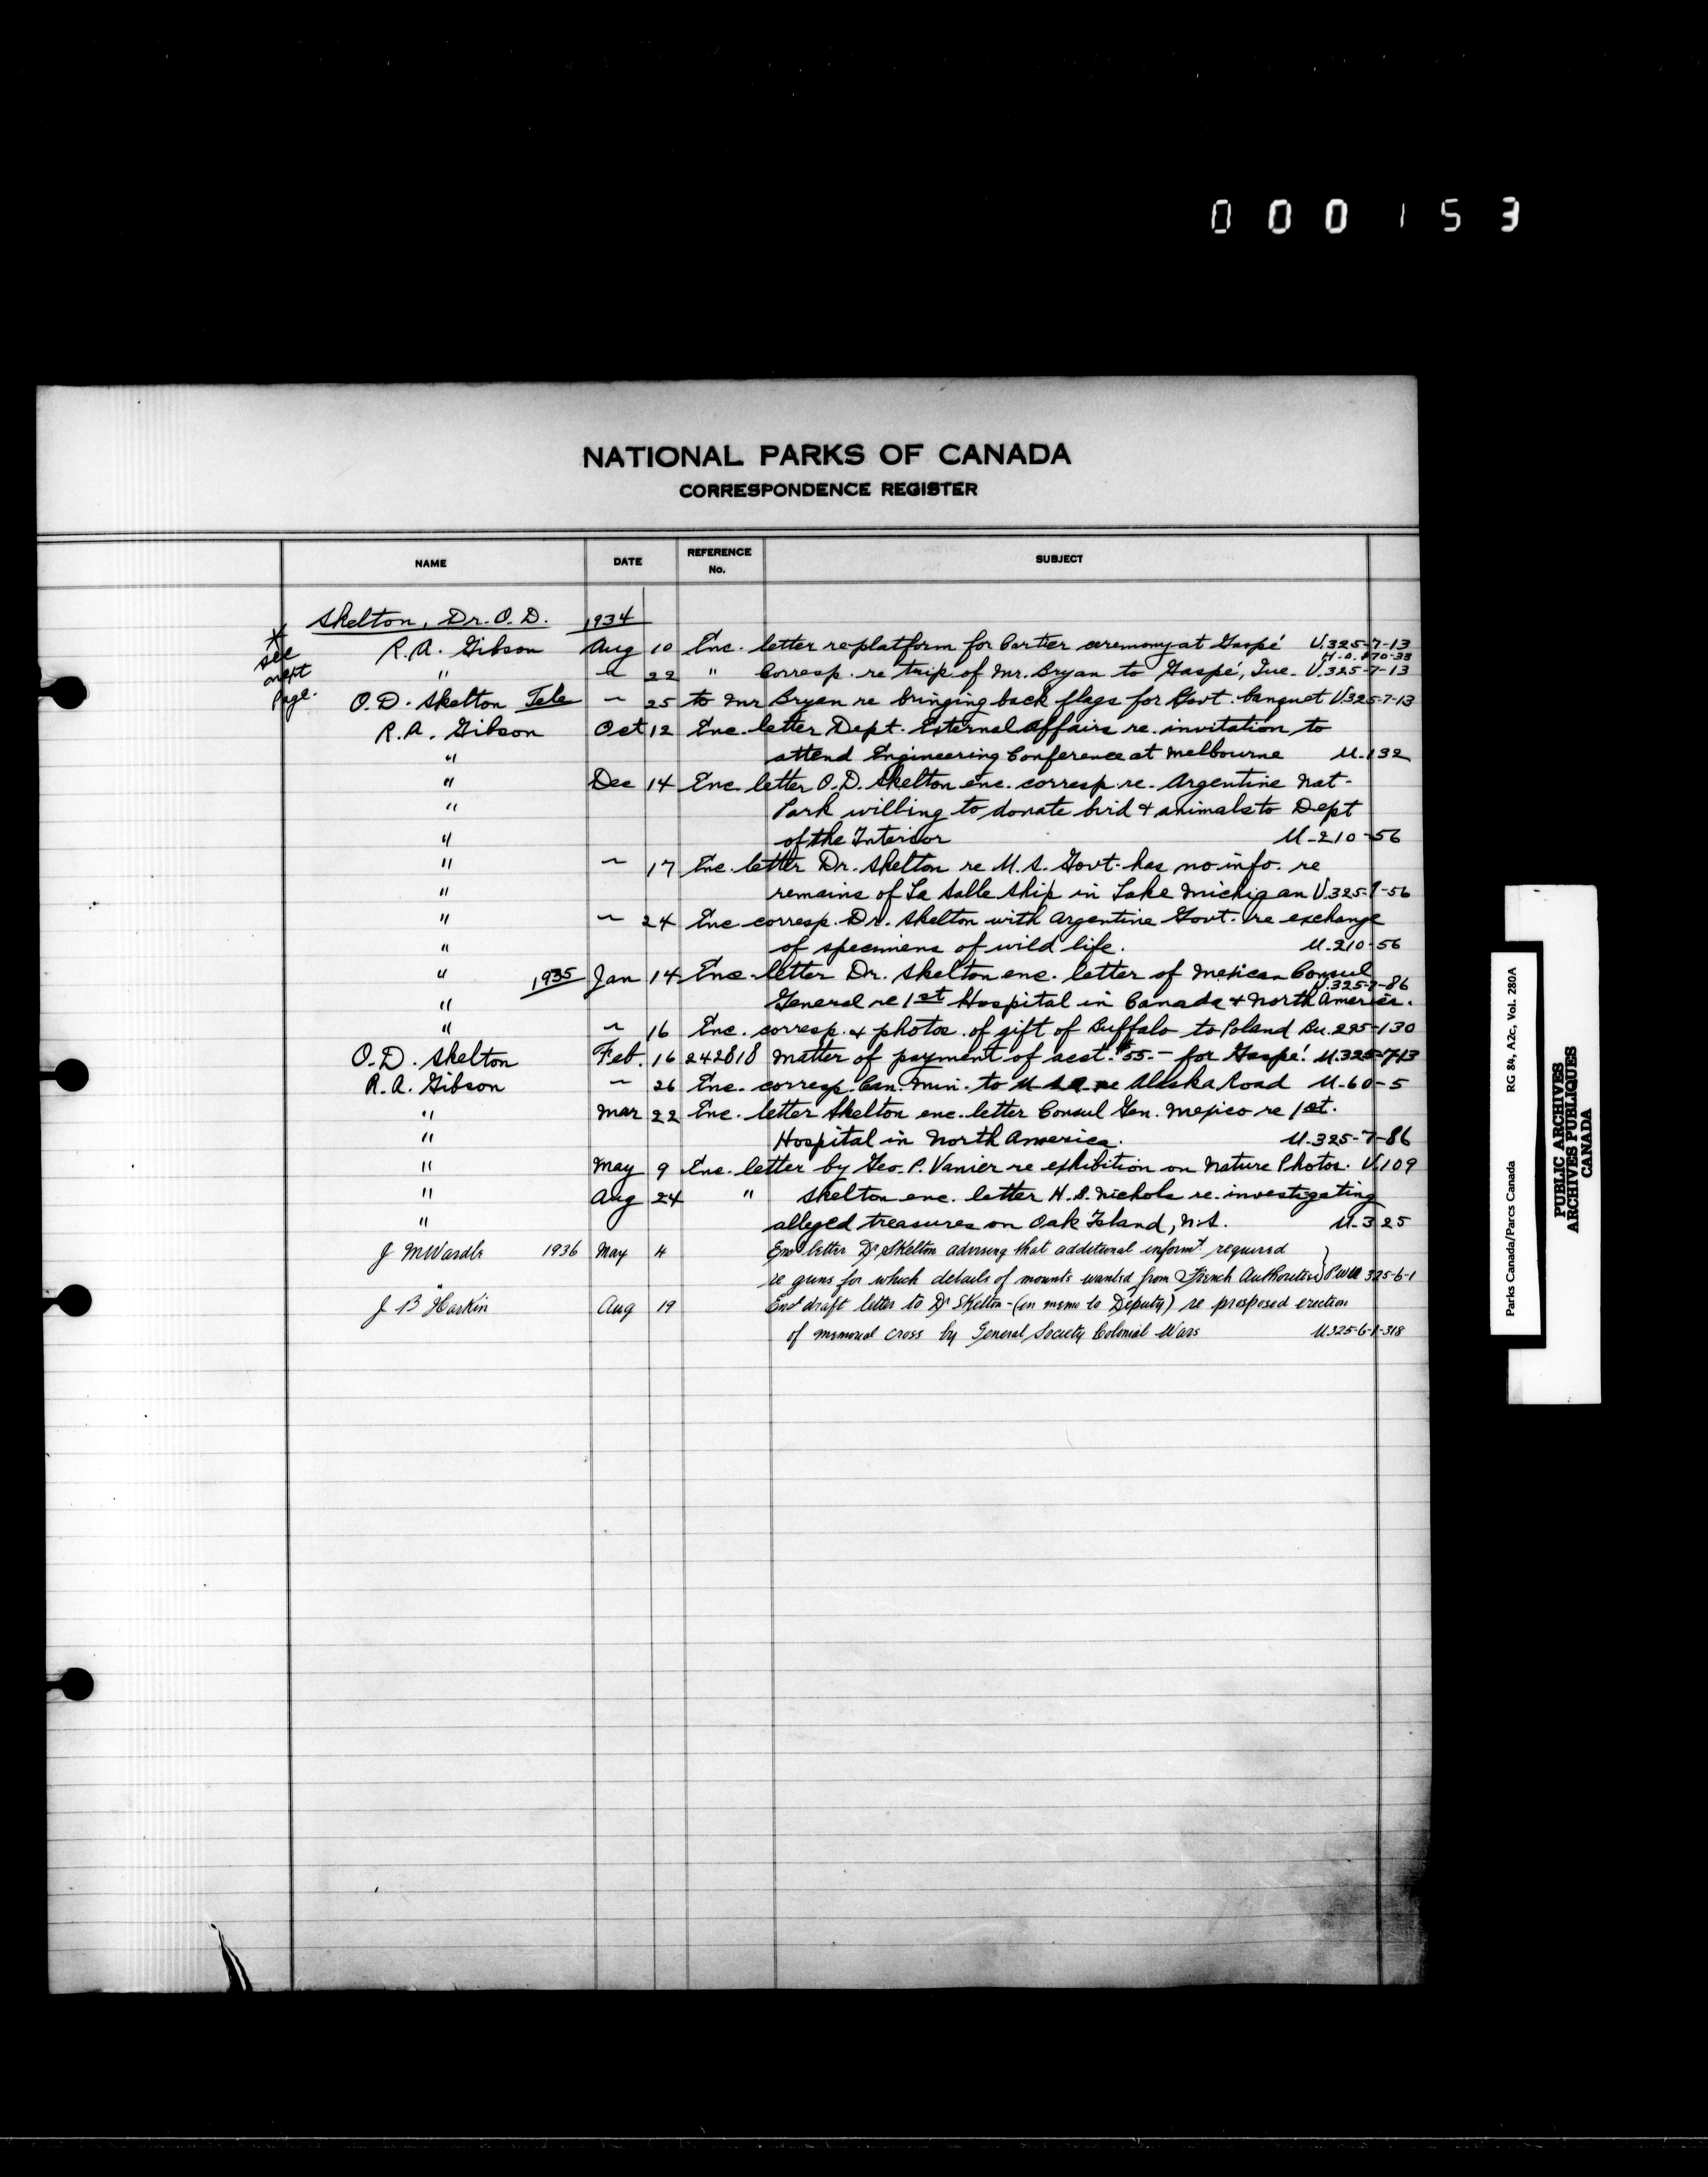 0 0 0 1 5 3
NATIONAL PARKS OF CANADA
CORRESPONDENCE REGISTER
NAME DATE REFERENCE No. SUBJECT
Skelton, Dr. O. D. 1934
* see next page.
R. A. Gibson Aug 10 Enc. letter re platform for Cartier ceremony at Gaspé U.325-7-13
" 〃 22 " Corresp. re trip of Mr. Bryan to Gaspé, Que. U.325-7-13
O. D. Skelton Tele 〃 25 to Mr Bryan re bringing back flags for Govt. banquet U325-7-13
R. A. Gibson Oct 12 Enc. letter Dept. External Affairs re. invitation to
" attend Engineering Conference at Melbourne U.132
" Dec 14 Enc. letter O. D. Skelton enc. corresp. re. Argentine Nat-
" Park willing to donate bird & animals to Dept
" of the Interior U-210-56
" 〃 17 Enc. letter Dr. Skelton re U. S. Govt. has no info. re
" remains of La Salle ship in Lake Michigan U.325-7-56
" 〃 24 Enc corresp. Dr. Skelton with Argentine Govt. re exchange
" of specimens of wild life. U.210-56
" 1935 Jan 14 Enc. letter Dr. Skelton enc. letter of Mexican Consul
" General re 1st Hospital in Canada & North America. U.325-7-86
" 〃 16 Enc. corresp. & photos. of gift of Buffalo to Poland Bu.295-130
O. D. Skelton Feb. 16 242818 Matter of payment of acct. $55.- for Gaspé. U.325-7-13
R. A. Gibson 〃 26 Enc. corresp. Can. Min. to U S A re Alaska Road U-60-5
" Mar 22 Enc. letter Skelton enc. letter Consul Gen. Mexico re 1st.
" Hospital in North America. U.325-7-86
" May 9 Enc. letter by Geo. P. Vanier re exhibition on Nature Photos. U.109
" Aug 24 " Skelton enc. letter H. S. Nichols re. investigating
" alleged treasures on Oak Island, N.S. U.325
J M Wardle 1936 May 4 Enc letter Dr Skelton advising that additional informt. required
" re guns for which details of mounts wanted from French Authorities 325-6-1
J B Harkin Aug 19 Encl draft letter to Dr Skelton - (in memo to Deputy) re proposed erection
of memorial cross by General Society Colonial Wars U325-6-1-318
Parks Canada/Parcs Canada RG 84, A2c, Vol. 280A
PUBLIC ARCHIVES
ARCHIVES PUBLIQUES
CANADA